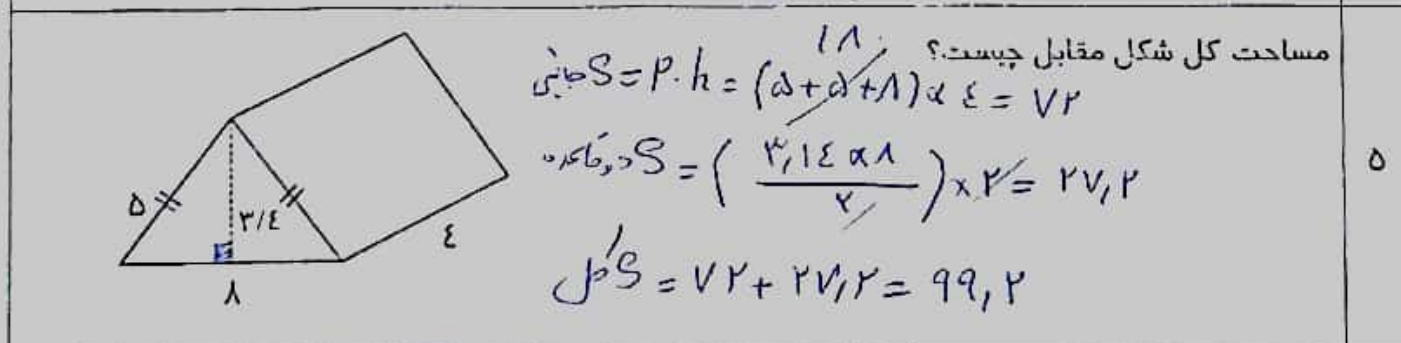 مساحت کل شکل مقابل چیست؟
۱۸
S جانبی = P.h = (۵+۵+۸)×٤ = ۷۲
S دو قاعده = (۳,۱٤×۸ / ۲)×۲ = ۲۷,۲
S کل = ۷۲+۲۷,۲ = ۹۹,۲
۵
۵
۳/٤
٤
۸